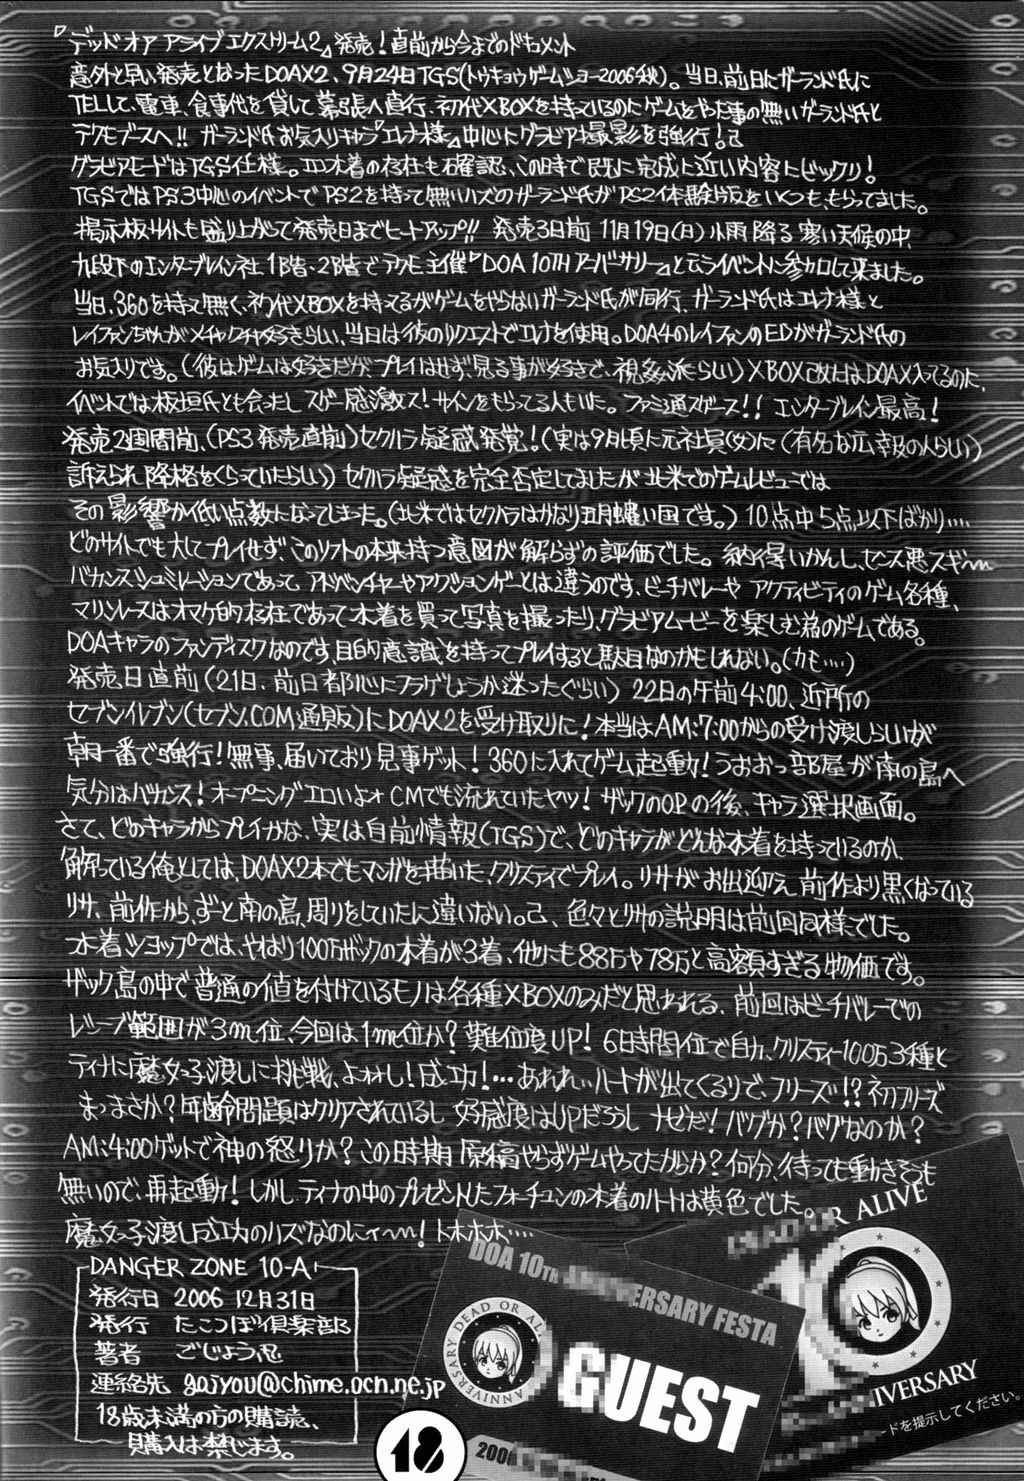 『デッド オア アライブ エクストリーム2』発売！直前から今までのドキュメント
意外と早い発売となったDOAX2、9月24日TGS(トウキョウゲームショー2006秋)。当日、前日にガーランド氏に
TELして、電車、食事代を貸して幕張へ直行、初代XBOXを持っているのにゲームをやった事の無いガーランド氏と
テクモブースへ!! ガーランド氏お気入りキャラ『エレナ様』中心にグラビア撮影を強行！
グラビアモードはTGS仕様。エロ水着の存在も確認、この時で既に完成に近い内容にビックリ！
TGSではPS3中心のイベントでPS2を持って無いハズのガーランド氏がPS2体験版をいくつも、もらってました。
掲示板サイトも盛り上がって発売日までヒートアップ!! 発売3日前 11月19日(日) 小雨 降る 寒い天候の中、
九段下のエンターブレイン社 1階、2階で テクモ主催『DOA 10THアニバーサリー』と云うイベントに参加して来ました。
当日、360を持って無く、初代XBOXを持ってるがゲームをやらないガーランド氏が同行、ガーランド氏はエレナ様と
レイファンちゃんがメチャクチャ好きらしい、当日は彼のリクエストでエレナを使用。DOA4のレイファンのEDがガーランド氏の
お気入りです。(彼はゲームは好きだが、プレイはせず、見る事が好きで、視姦派らしい) XBOX改にはDOAX入ってるのに、
イベントでは板垣氏とも会ったし スゲー感激ス！サインをもらってる人もいた。ファミ通スポース!! エンターブレイン最高！
発売2週間前、(PS3発売直前)セクハラ疑惑発覚！(実は9月頃に元社員(女)に(有名な広報の人らしい)
訴えられ 降格をくらっていたらしい) セクハラ疑惑を完全否定してましたが 北米でのゲームレビューでは
その影響か低い点数になってしまった。(北米ではセクハラはかなり五月蠅い国です。) 10点中5点以下ばかり‥‥
どのサイトでも大してプレイせず、このソフトの本来持つ意図が解らずの評価でした。納得いかんし、センス悪スギ〜
バカンスシュミレーションであって、アドベンチャーやアクションゲーとは違うのです、ビーチバレーや アクティビティのゲーム各種、
マリンレースはオマケ的存在であって水着を買って写真を撮ったり、グラビアムービーを楽しむ為のゲームである。
DOAキャラのファンディスクなのです、目的意識を持ってプレイすると駄目なのかもしれない。(カモ‥‥)
発売日直前(21日、前日都心にフラゲしようか迷ったぐらい) 22日の午前4:00、近所の
セブンイレブン(セブン.COM通販)にDOAX2を受け取りに！本当はAM:7:00からの受け渡しらしいが
朝一番で強行！無事、届いており 見事ゲット！360に入れてゲーム起動！うおおっ部屋が南の島へ
気分はバカンス！オープニングエロいよォ CMでも流れていたヤツ！ザックのOPの後、キャラ選択画面。
さて、どのキャラからプレイかな、実は自前情報(TGS)で、どのキャラがどんな水着を持っているのか、
解っている俺としては、DOAX2本でもマンガを描いた、クリスティでプレイ。リサがお出迎え、前作より黒くなっている
リサ、前作から、ずーと南の島、周りをしていたに違いない。色々とリサの説明は前回同様でした。
水着ショップでは、やはり100万ザックの水着が3着、他にも88万や78万と高額すぎる物価です。
ザック島の中で普通の値を付けているモノは各種XBOXのみだと思われる、前回はビーチバレーでの
レシーブ範囲が3m位、今回は1m位か？難位度UP！6日時間位で自力、クリスティー100万3種と
ティナに魔女っ子渡しに挑戦、よォォし！成功！…あれれぃハートが出てくるりで、フリーズ!? 初フリーズ
まっまさか？年齢問題はクリアされているし 好感度はUPだろうし ナゼだ！バグか？バグなのか？
AM:4:00ゲットで神の怒りか？この時期 原稿やらずゲームやってたからか？何分、待っても動きそうも
無いので、再起動！しかし、ティナの中のプレゼントしたフォーチュンの水着のハートは黄色でした。
魔女っ子渡し成功のハズなのにィ〜！トホホホ‥‥
DANGER ZONE 10-A
発行日 2006 12月31日
発行 たこつぼ倶楽部
著者 ごじょう忍
連絡先 gojyou@chime.ocn.ne.jp
18歳未満の方の購読、
購入は禁じます。
18
DOA 10TH ANNIVERSARY FESTA
ANNIVERSARY DEAD OR AL
GUEST
2006
DEAD OR ALIVE
10
NIVERSARY
ードを提示してください。